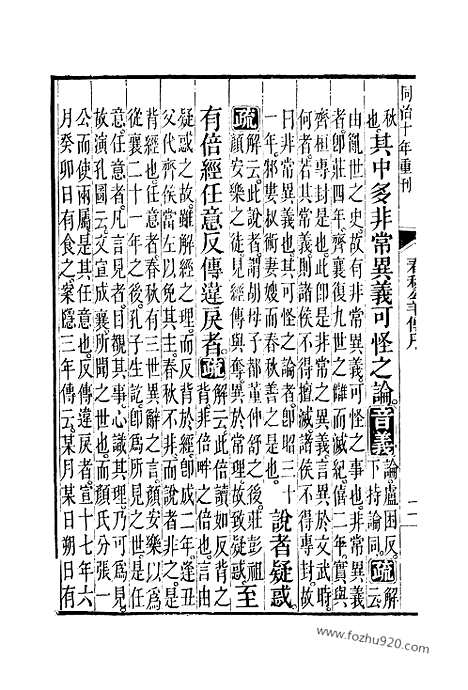 同治十年重刊
春秋公羊傳序
二
秋也。其中多非常異義可怪之論。音義論盧困反。下持論同。疏解云
由亂世之史。故有非常異義可怪之事也。非常異義
者。即莊四年。齊襄復九世之讎而滅紀。僖二年。實與
齊桓專封是也。此即是非常之異義。言異於文武時。
何者。若其常義。則諸侯不得擅滅諸侯。不得專封。故
曰非常異義也。其可怪之論者。即昭三十
一年。邾婁叔術妻嫂而春秋善之是也。
說者疑惑。
疏解云。此說者。謂胡母子都董仲舒之後。莊彭祖
顏安樂之徒。見經傳與奪。異於常理。故致疑惑。
至
有倍經任意反傳違戾者。疏解云。此倍讀如反背之
背。非倍畔之倍也。言由
疑惑之故。雖解經之理。而反背於經。即成二年。逢丑
父代齊侯當左以免其主。春秋不非。而說者非之。是
背經也。任意者。春秋有三世異辭之言。顏安樂以為
從襄二十一年之後。孔子生訖。即為所見之世。是任
意。任意者。凡言見者。目覩其事。心識其理。乃可為見。
故演孔圖云。文宣成襄所聞之世也。而顏氏分張一
公而使兩屬。是其任意也。反傳違戾者。宣十七年六
月癸卯。日有食之。案隱三年傳云。某月某日朔。日有
www.fozhu920.com